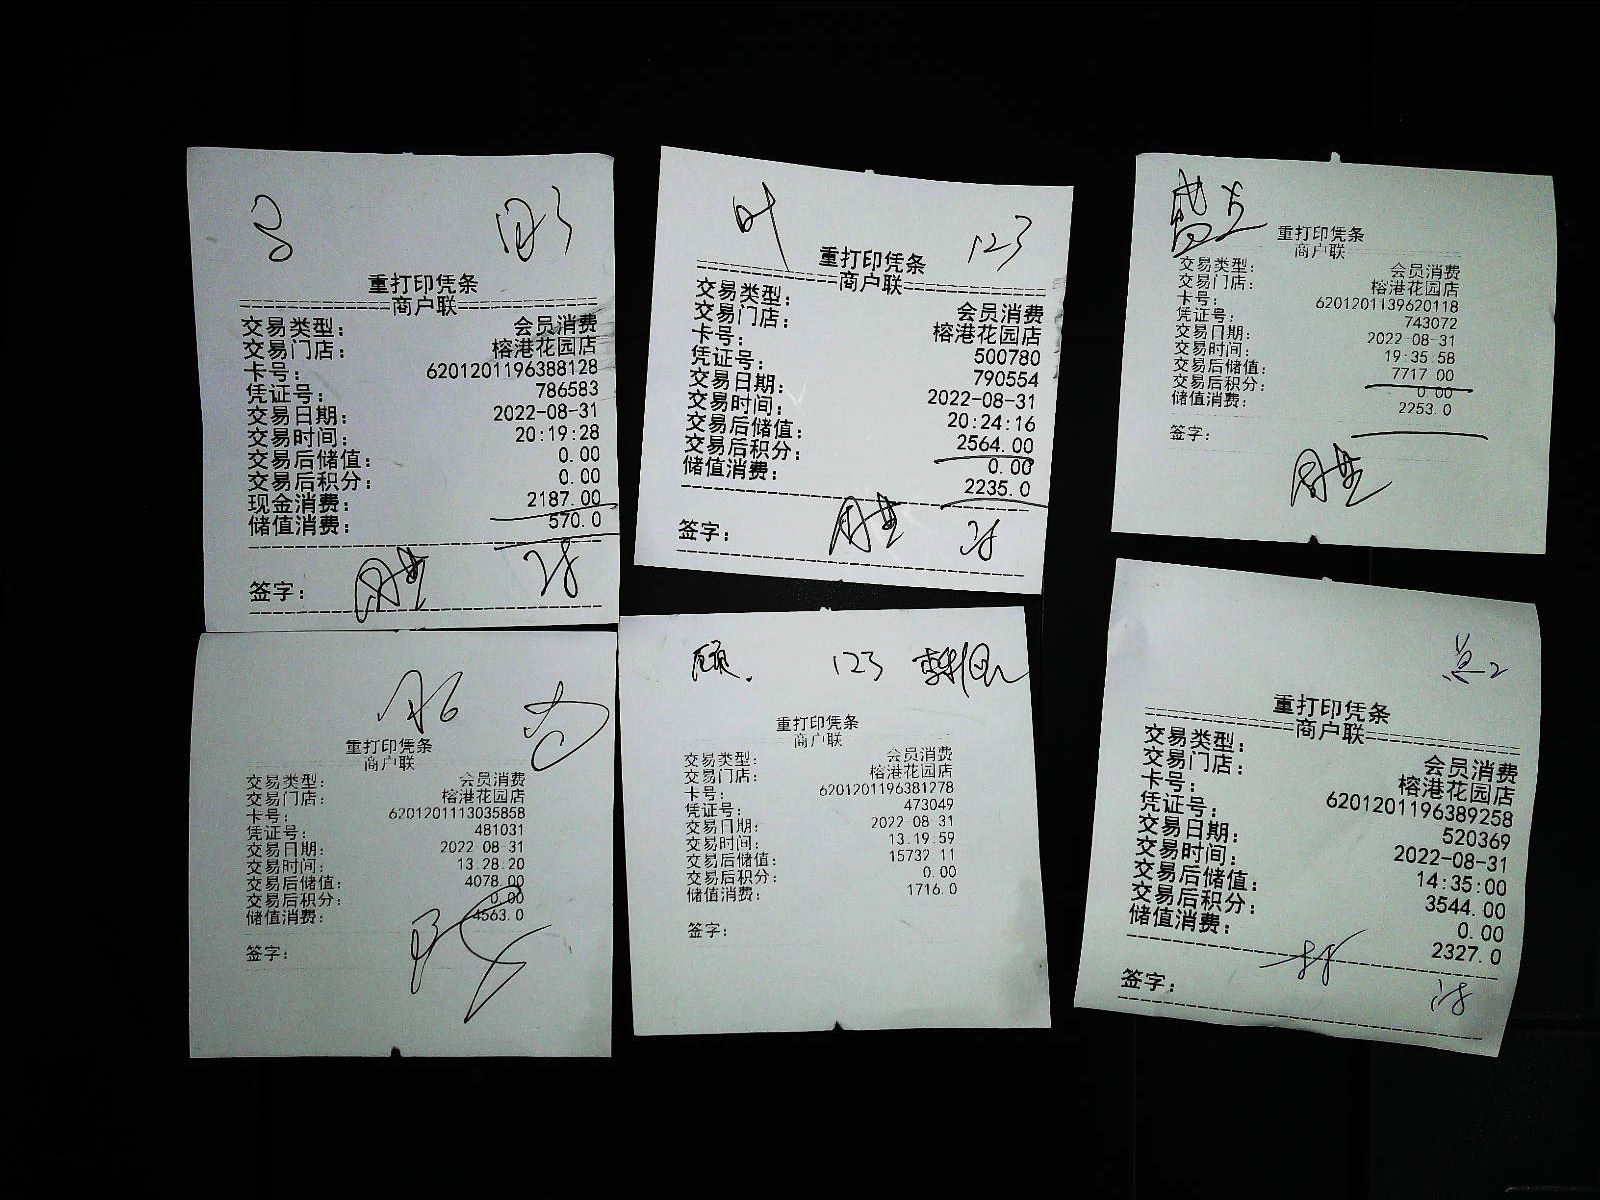 重打印凭条
商户联
交易类型： 会员消费
交易门店： 榕港花园店
卡号： 6201201196388128
凭证号： 786583
交易日期： 2022-08-31
交易时间： 20:19:28
交易后储值： 0.00
交易后积分： 0.00
现金消费： 2187.00
储值消费： 570.0
签字：
123
重打印凭条
商户联
交易类型： 会员消费
交易门店： 榕港花园店
卡号： 500780
凭证号： 790554
交易日期： 2022-08-31
交易时间： 20:24:16
交易后储值： 2564.00
交易后积分： 0.00
储值消费： 2235.0
签字：
重打印凭条
商户联
交易类型： 会员消费
交易门店： 榕港花园店
卡号： 6201201139620118
凭证号： 743072
交易日期： 2022-08-31
交易时间： 19:35:58
交易后储值： 7717.00
交易后积分： 0.00
储值消费： 2253.0
签字：
重打印凭条
商户联
交易类型： 会员消费
交易门店： 榕港花园店
卡号： 6201201113035858
凭证号： 481031
交易日期： 2022-08-31
交易时间： 13:28:20
交易后储值： 4078.00
交易后积分： 0.00
储值消费： 4563.0
签字：
顾. 123
重打印凭条
商户联
交易类型： 会员消费
交易门店： 榕港花园店
卡号： 6201201196381278
凭证号： 473049
交易日期： 2022-08-31
交易时间： 13:19:59
交易后储值： 15732.11
交易后积分： 0.00
储值消费： 1716.0
签字：
重打印凭条
商户联
交易类型： 会员消费
交易门店： 榕港花园店
卡号： 6201201196389258
凭证号： 520369
交易日期： 2022-08-31
交易时间： 14:35:00
交易后储值： 3544.00
交易后积分： 0.00
储值消费： 2327.0
签字：